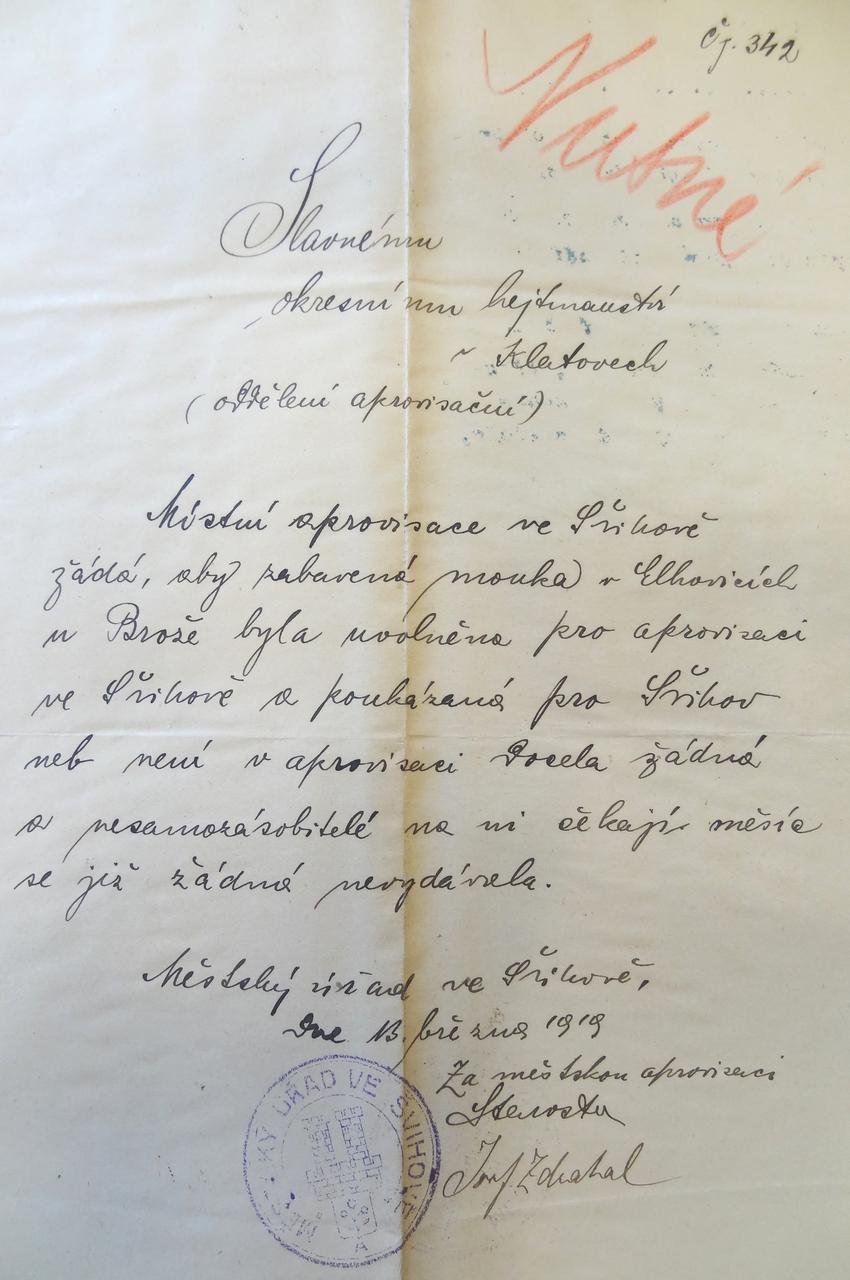 Čj. 342
Nutné
Slavnému
okresnímu hejtmanství
v Klatovech
(oddělení aprovisační)
Místní aprovisace ve Švihově
žádá, aby zabavená mouka v Elhovicích
u Brože byla uvolněna pro aprovisaci
ve Švihově a poukázaná pro Švihov
neb není v aprovisaci docela žádná
a nesamozásobitelé na ni čekají měsíc
se již žádná nevydávala.
Městský úřad ve Švihově,
dne 13. března 1919
Za městskou aprovisaci
Starosta
MĚSTSKÝ ÚŘAD VE ŠVIHOVĚ